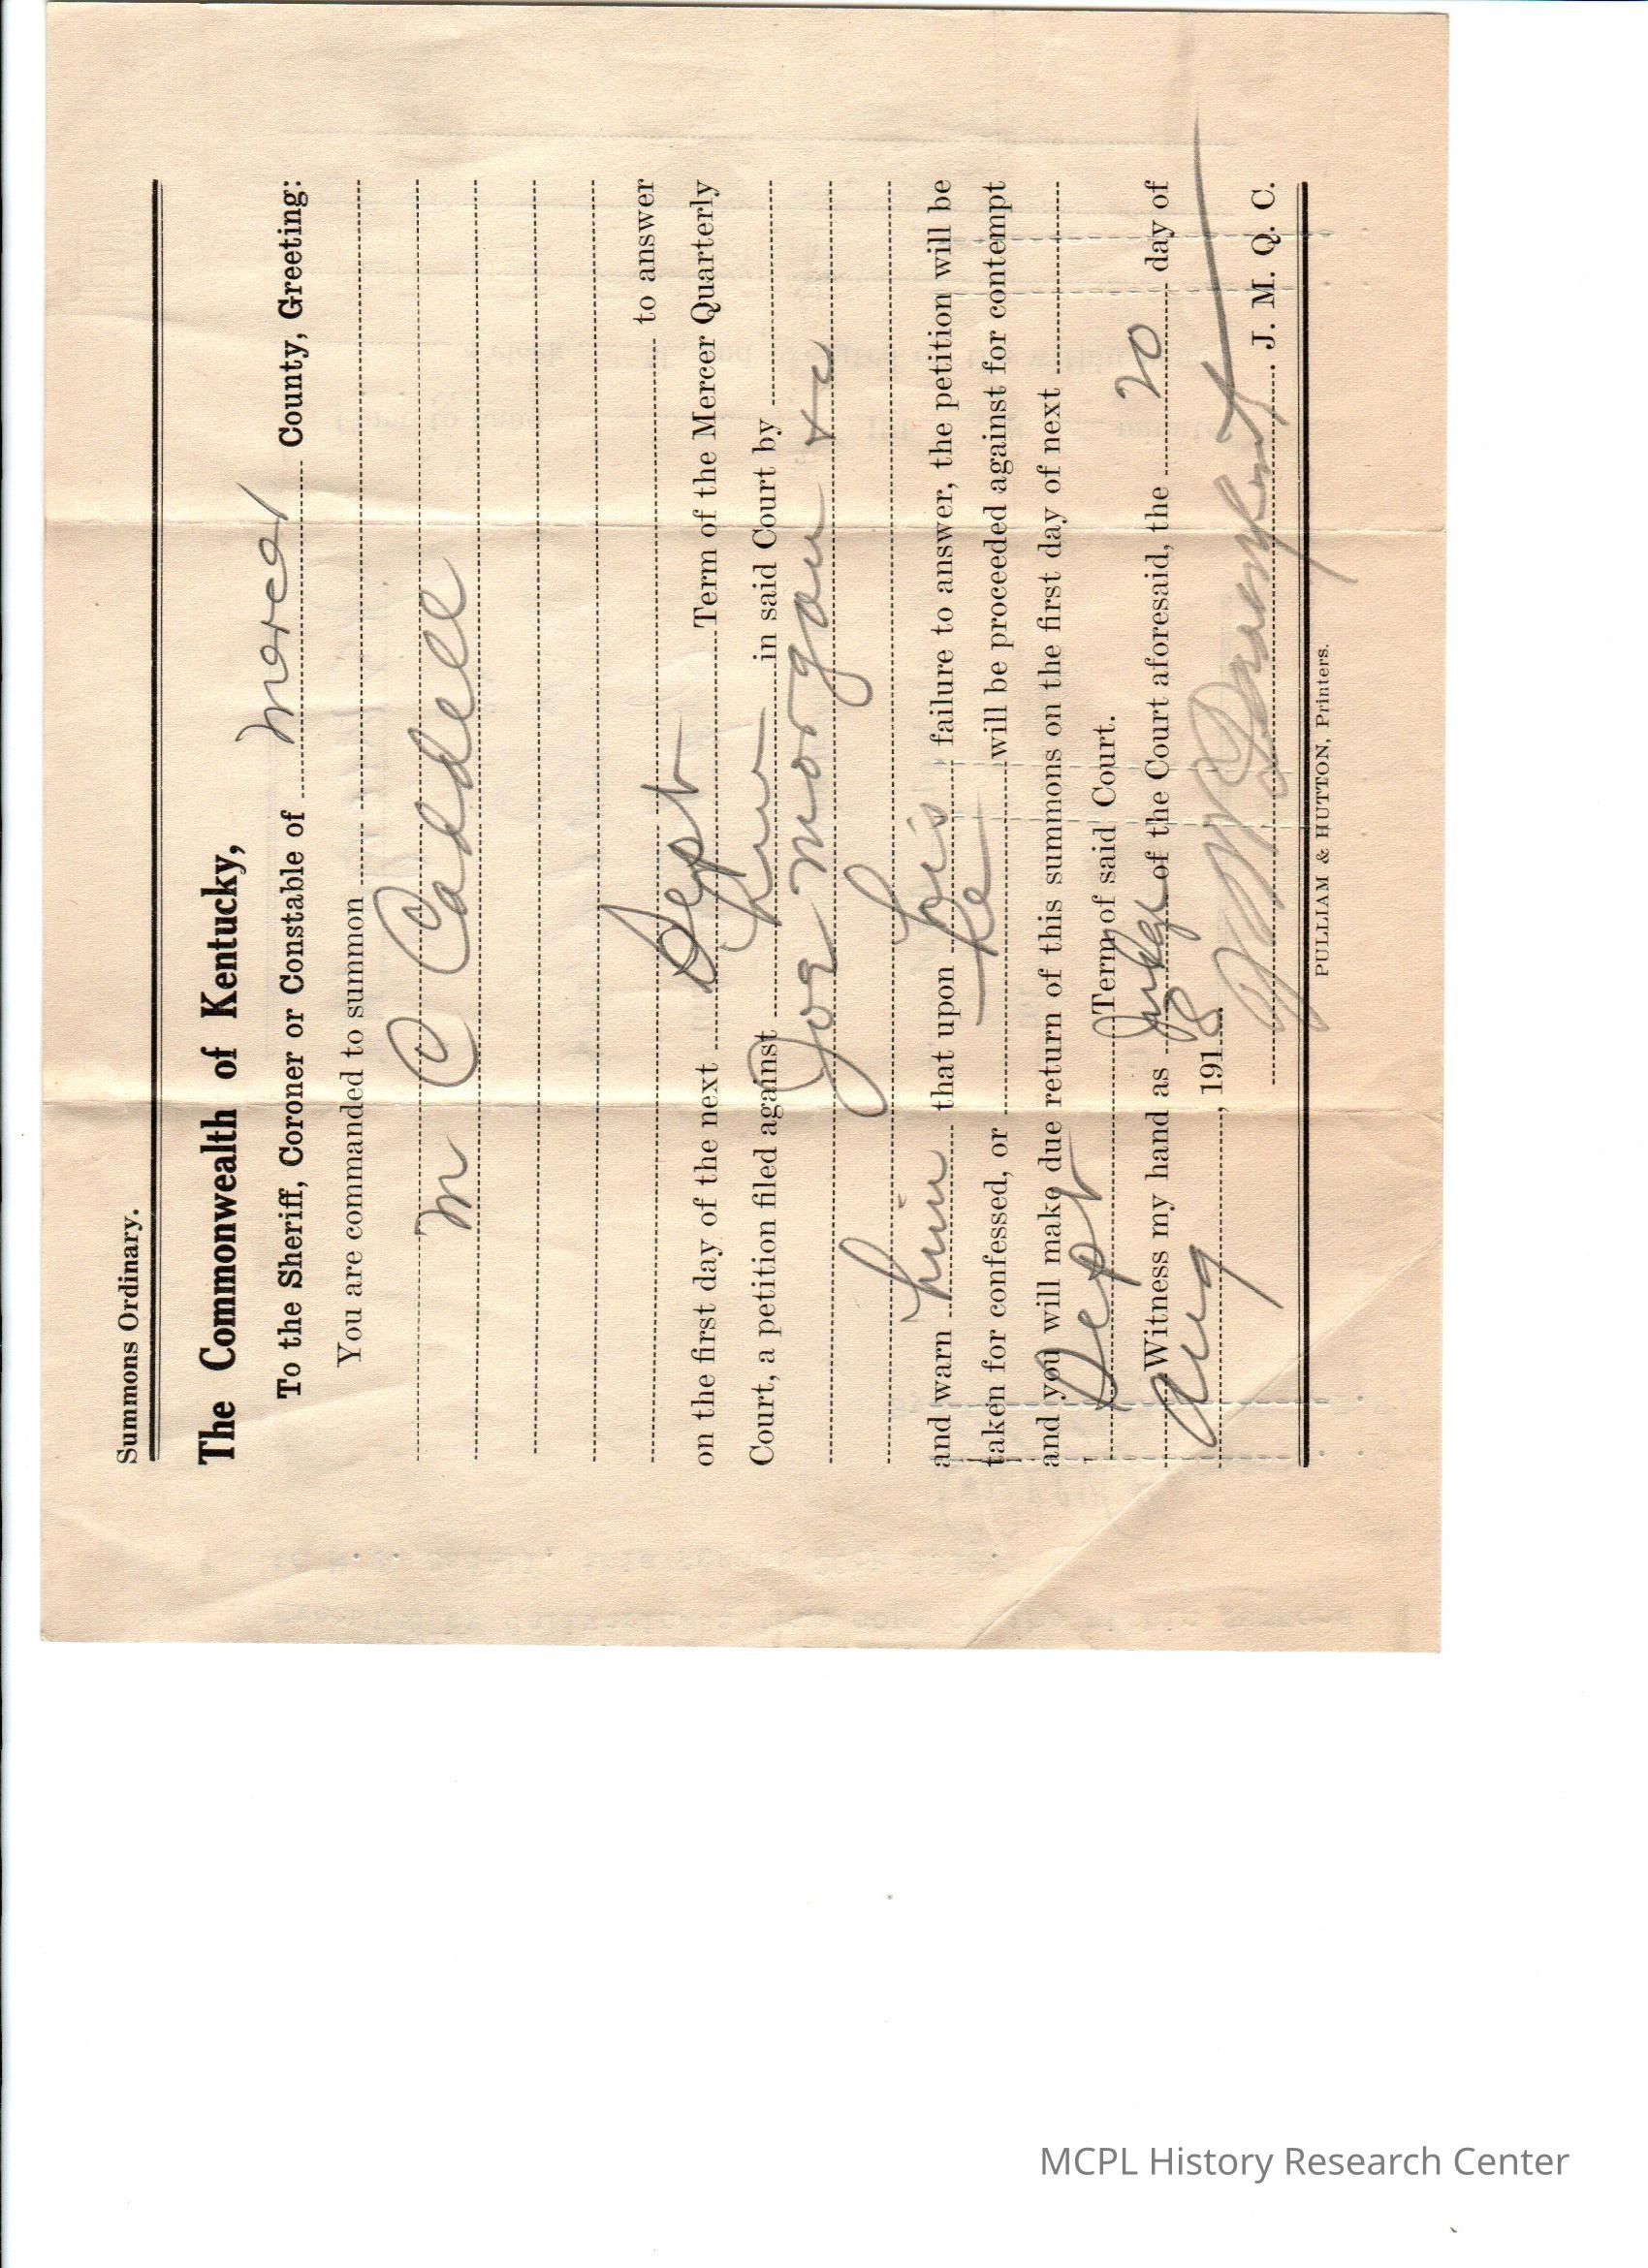 Summons Ordinary.
The Commonwealth of Kentucky,
To the Sheriff, Coroner or Constable of Mercer County, Greeting:
You are commanded to summon
M C Caldell
to answer
on the first day of the next Sept Term of the Mercer Quarterly
Court, a petition filed against him in said Court by
Joe Morgan &c
and warn him that upon his failure to answer, the petition will be
taken for confessed, or he will be proceeded against for contempt
and you will make due return of this summons on the first day of next
Sept Term of said Court.
Witness my hand as Judge of the Court aforesaid, the 20 day of
Aug, 1918
J. M. Q. C.
PULLIAM & HUTTON, Printers.
MCPL History Research Center